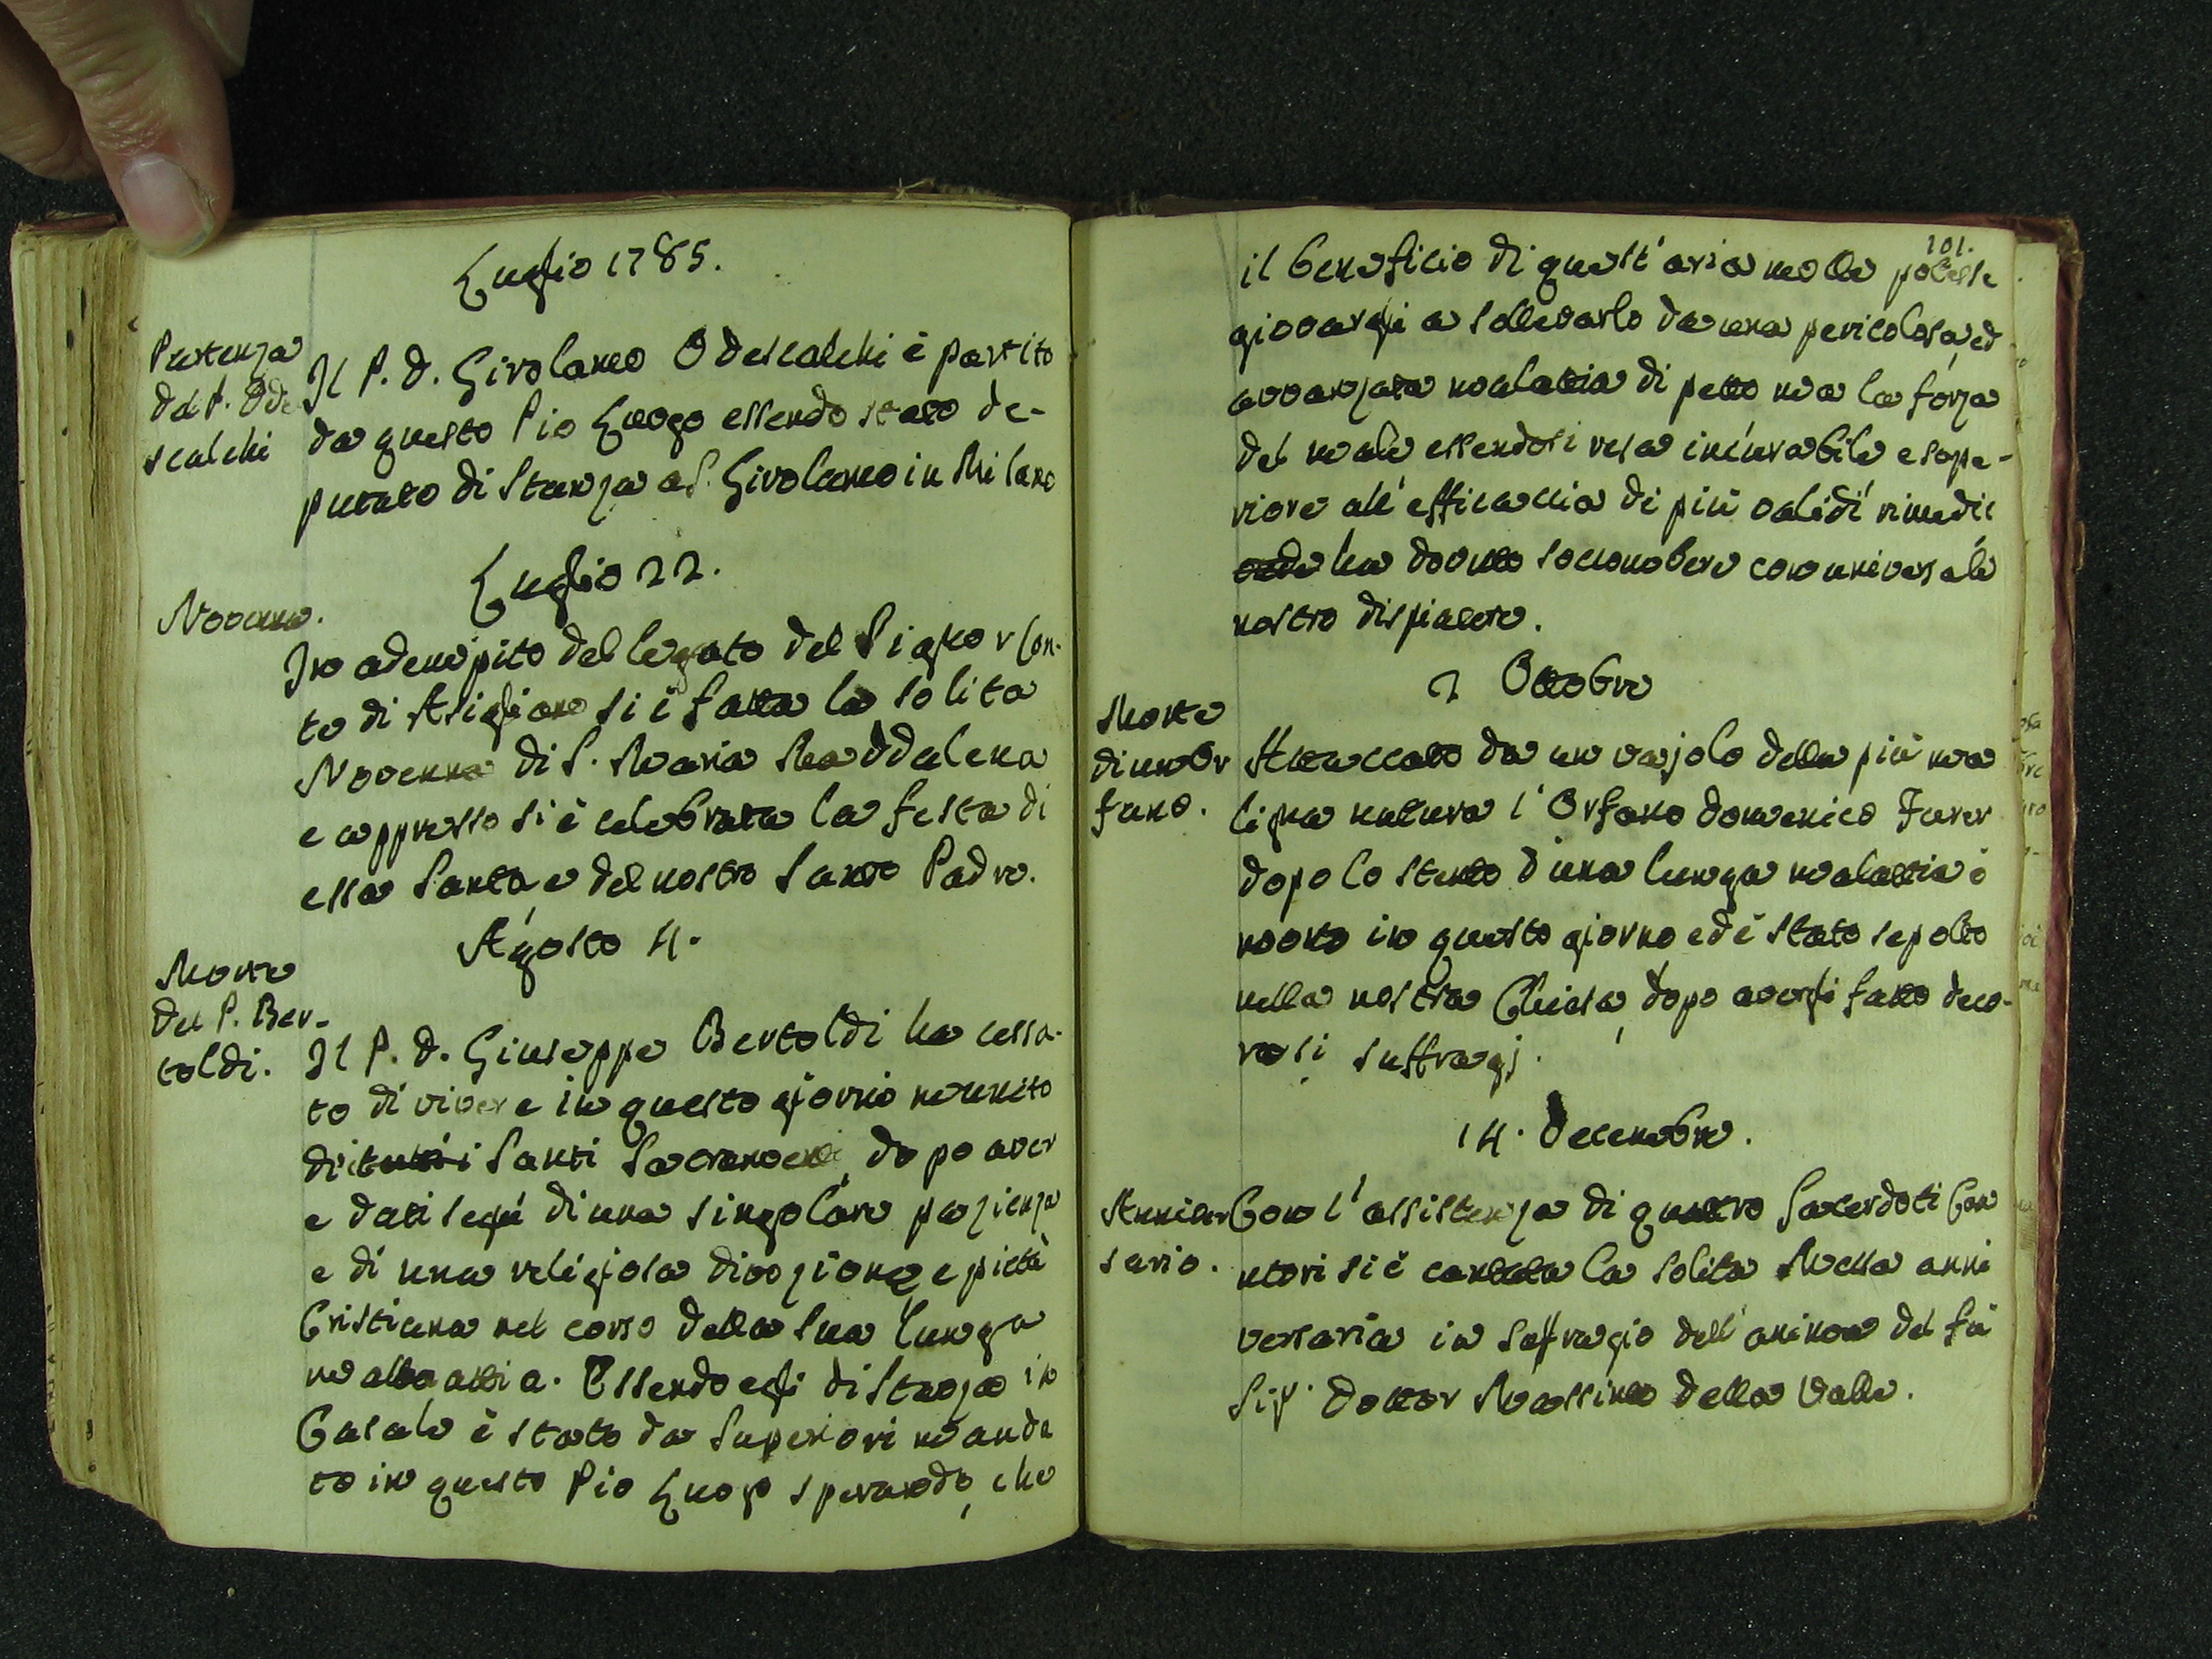 Luglio 1785.
Partenza
del P. Ode
scalchi
Il P. D. Girolamo Odescalchi è partito
da questo Pio Luogo essendo stato de-
putato di stanza a S. Girolamo in Milano
Luglio 22.
Novenna.
In adempito del legato del Signor Con-
te di Asigliano si è fatta la solita
Novenna di S. Maria Maddalena
e appresso si è celebrata la festa di
essa Santa, e del nostro Santo Padre.
Agosto 4.
Morte
del P. Ber-
toldi.
Il P. D. Giuseppe Bertoldi ha cessa-
to di vivere in questo giorno munito
di tutti i Santi Sacramenti, dopo aver
e dati segni di una singolare pazienza
e di una religiosa divozione, e pietà
Cristiana nel corso della sua lunga
mallattia. Essendo egli di stanza in
Casale è stato da Superiori manda
to in questo Pio Luogo sperando, che
101.
il beneficio di quest'aria molle potesse
giovargli a sollevarlo da una pericolosa, ed
avvanzata malattia di petto ma la forza
del male essendosi resa incurabile e supe-
riore all'efficaccia di più validi rimedii
ha dovuto soccombere con universale
nostro dispiacere.
2 Ottobre
Morte
di un Or
fano.
Attaccato da un vajolo della più ma
ligna natura l'Orfano Domenico
dopo lo stento d'una lunga malattia è
morto in questo giorno ed è stato sepolto
nella nostra Chiesa, dopo avergli fatto deco-
rosi suffragj.
14. Decembre.
Anniver
sario.
Con l'assistenza di quattro Sacerdoti Can
ntori si è cantata la solita Messa anni
versaria in suffragio dell'anima del fù
Sig.r Dottor Massimo della Valle.